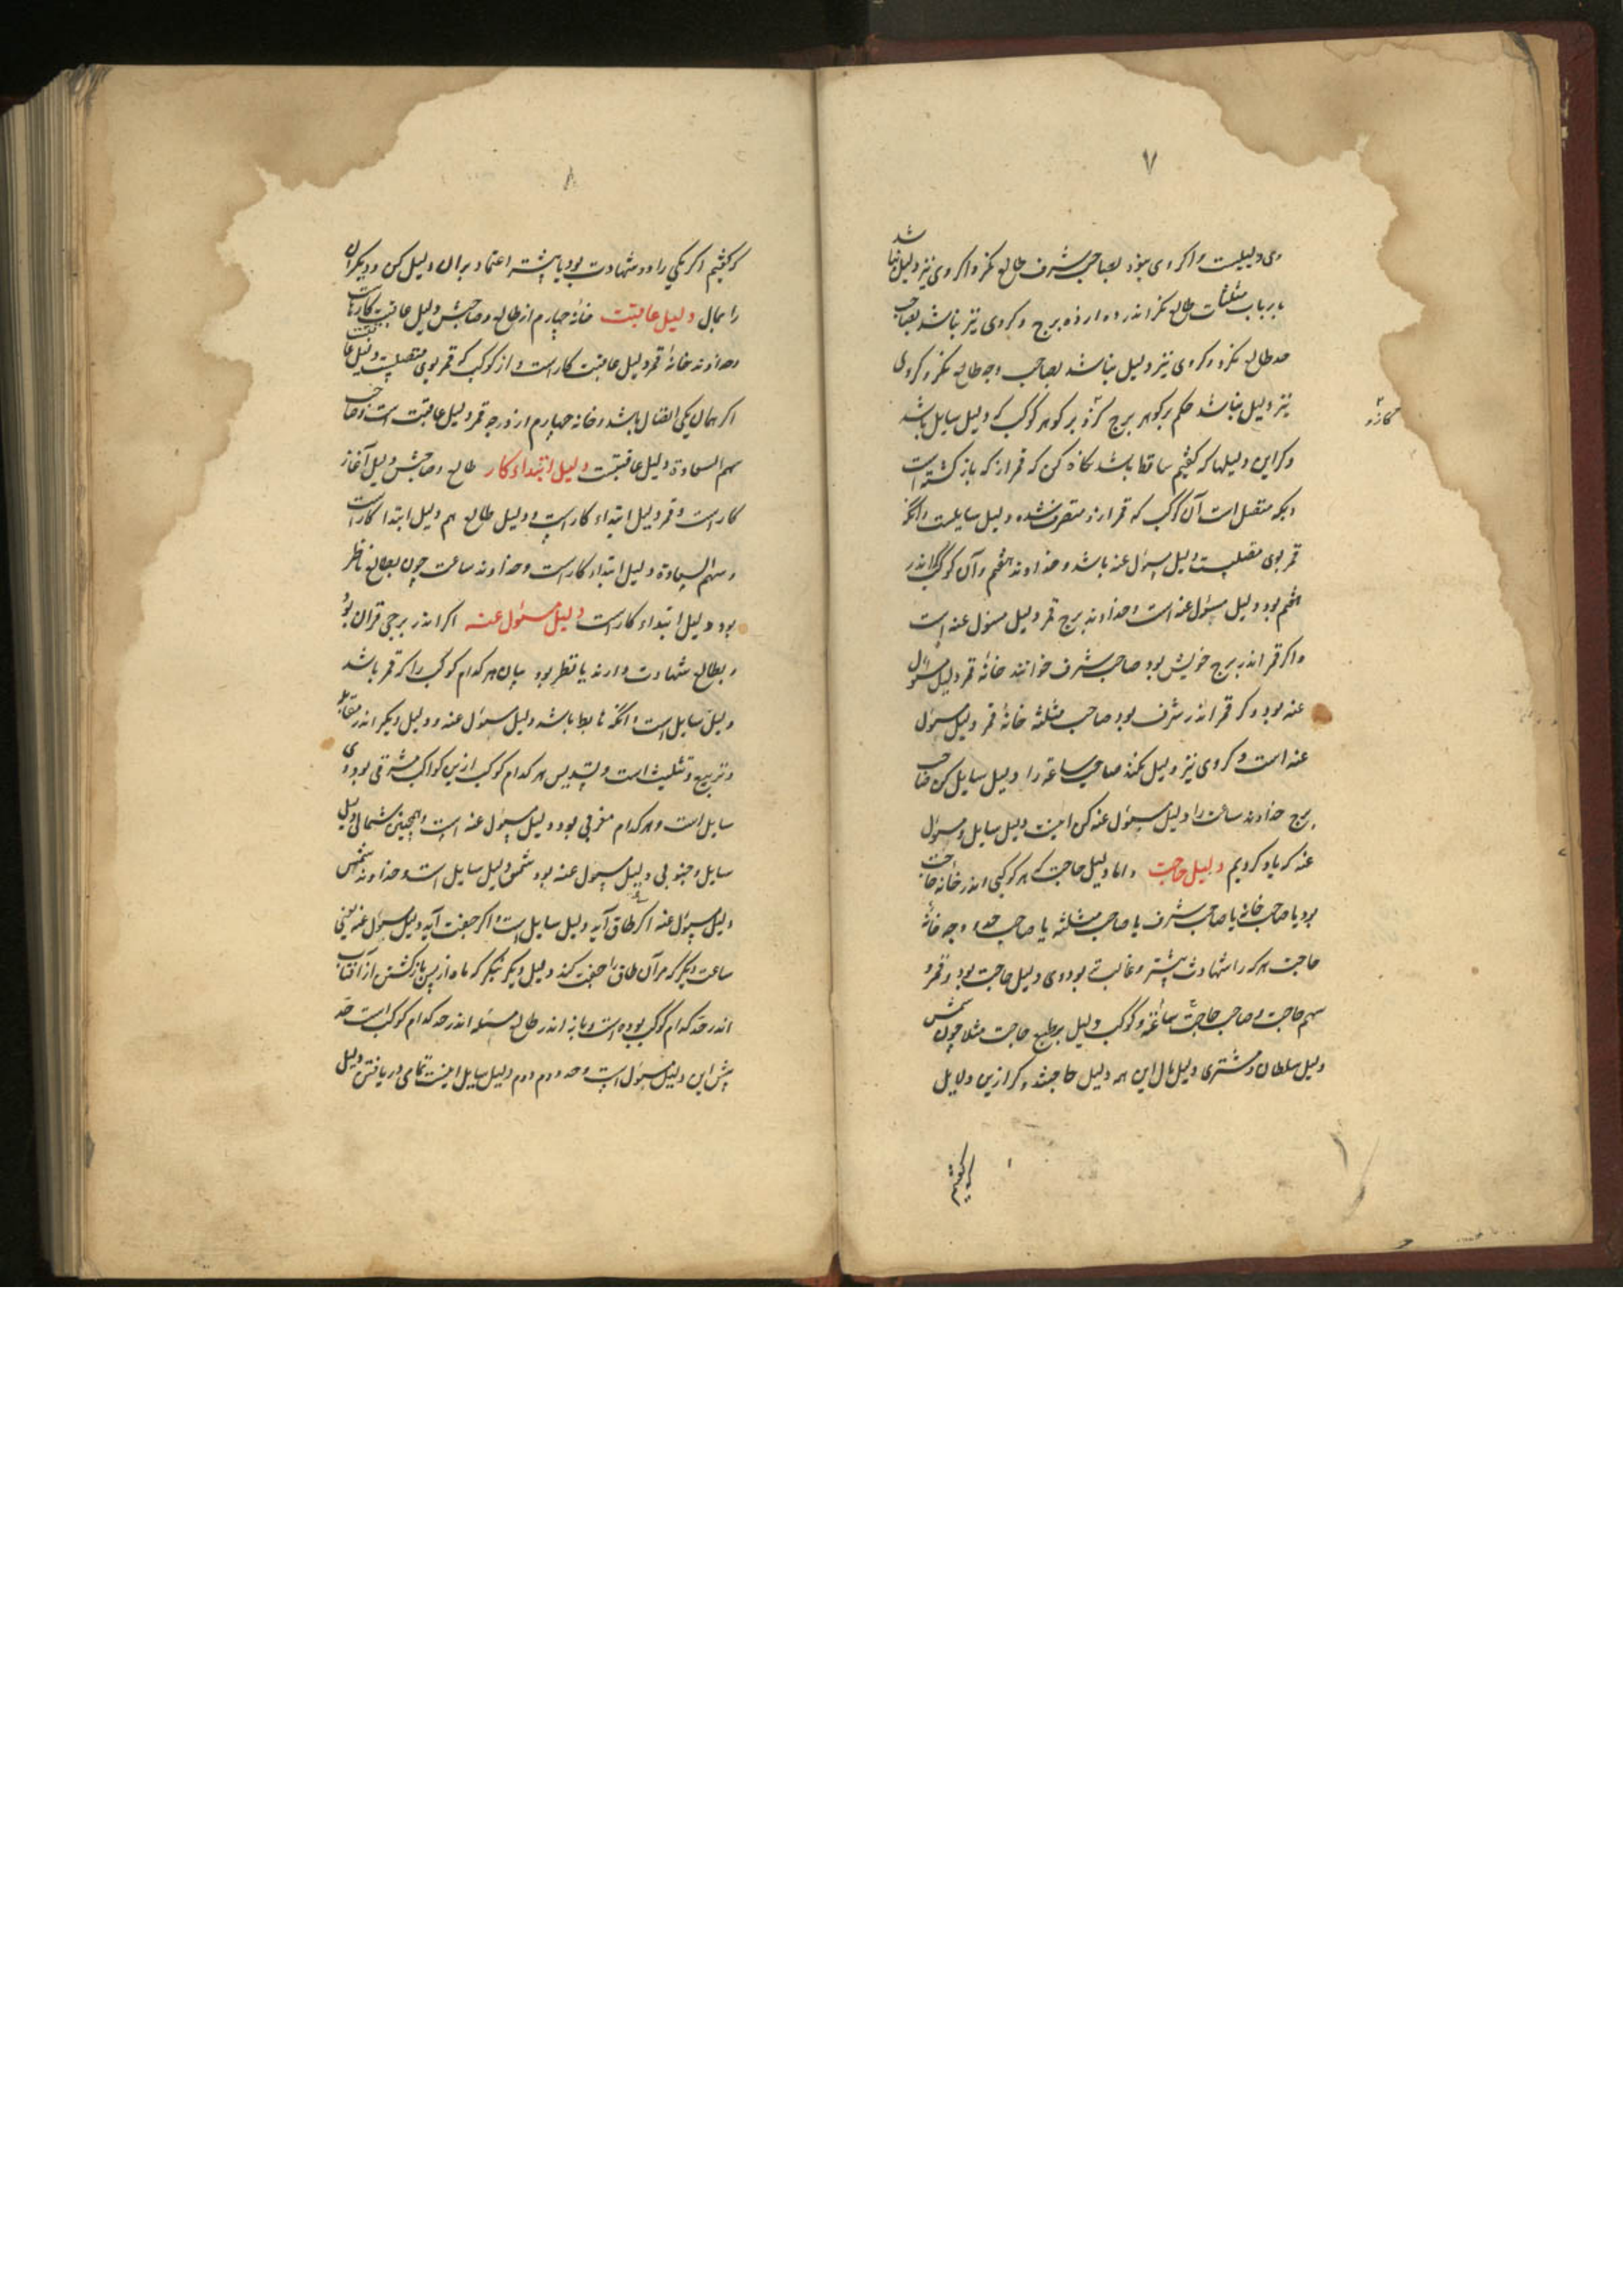 ۷
وی دلیلست و اگر وی نبود بصاحب شرف طالع نکر و اگر وی نیز دلیل نباشد
بارباب مثلثات طالع نکر اندر دوازده برج و کر وی نیز نباشد بصاحب
حد طالع نکر و کر وی نیز دلیل نباشد بصاحب وجه طالع نکر و کر وی
نیز دلیل نباشد حکم بر کوهر برج کن و بر کوهر کوکب که دلیل سایل باشد
و کر این دلیلها که کفتیم ساقط باشد نکاه کن که قمر از که بازکشته است
و بکه متصل است آن کوکب که قمر ازو منصرف شده دلیل سایلست و آنک
قمر بوی متصلست دلیل مسؤل عنه باشد و خداوند هفتم و آن کوکب که اندر
هفتم بود دلیل مسؤل عنه است و خداوند برج قمر دلیل مسؤل عنه است
و اکر قمر اندر برج خویش بود صاحب شرف خوانند خانهٔ قمر دلیل مسؤل
عنه بود و کر قمر اندر شرف بود صاحب مثلثه خانهٔ قمر دلیل مسؤل
عنه است و کر وی نیز دلیل نکند صاحب ساعة را دلیل سایل کن صاحب
برج خداوند ساعت را دلیل مسؤل عنه کن اینست دلیل سایل و مسؤل
عنه که یاد کردیم دلیل حاجت و اما دلیل حاجت که هر کوکبی اندر خانهٔ حاجت
بود یا صاحب خانه یا صاحب شرف یا صاحب مثلثه یا صاحب حد و وجه خانهٔ
حاجت هر که را شهادت بیشتر و غالب تر بود وی دلیل حاجت بود و قمر و
سهم حاجت و صاحب حاجت ساعة و کوکب دلیل بر طبع حاجت مثلا چون شمس
دلیل سلطان و مشتری دلیل مال این همه دلیل حاجتند و کر ازین دلایل
که کفتیم
۸
که کفتیم اکر یکی را دو شهادت بود یا بیشتر اعتماد بران دلیل کن و دیکران
را بمال دلیل عاقبت خانهٔ چهارم از طالع و صاحبش دلیل عاقبت کارهاست
و خداوند خانهٔ قمر دلیل عاقبت کار است و از کوکب که قمر بوی متصلست دلیل عاقبت
اکر همان یکی اتصال باشد و خانه چهارم از درجه قمر دلیل عاقبت است و صاحب
سهم السعادة دلیل عاقبتست دلیل ابتداء کار طالع و صاحبش دلیل آغاز
کار است و قمر دلیل ابتداء کار است و دلیل طالع هم دلیل ابتدا کار است
و سهم السعادة دلیل ابتداء کار است و خداوند ساعت چون بطالع ناظر
بود دلیل ابتداء کار است دلیل مسئول عنه اکر اندر برجی قران بود
و بطالع شهادت دارند یا نظر بود بدان هر کدام کوکب را که قمر باشد
دلیل سایل است و آنکه هابط باشد دلیل مسؤل عنه و دلیل دیکر اندر مقابله
و تربیع و تثلیث است و تسدیس هر کدام کوکب ازین کواکب مشرقی بود وی
سایل است و هر کدام مغربی بود دلیل مسؤل عنه است و همچنین شمالی دلیل
سایل و جنوبی دلیل مسؤل عنه بود شمس دلیل سایل است و خداوند شمس
دلیل مسؤل عنه اکر طاق آید دلیل سایل است و اکر جفت آید دلیل مسؤل عنه یعنی
ساعت دیکر که مر آن طاق را جفت کند دلیل دیکر بنکر که ماه از پس بازکشتن از آفتاب
اندر حد کدام کوکب بوده است و باز اندر طالع مسئله اندر حد کدام کوکب است حد
پیش این دلیل مسؤل است و حد دوم دلیل سایل اینست تمامی دریافتن دلیل